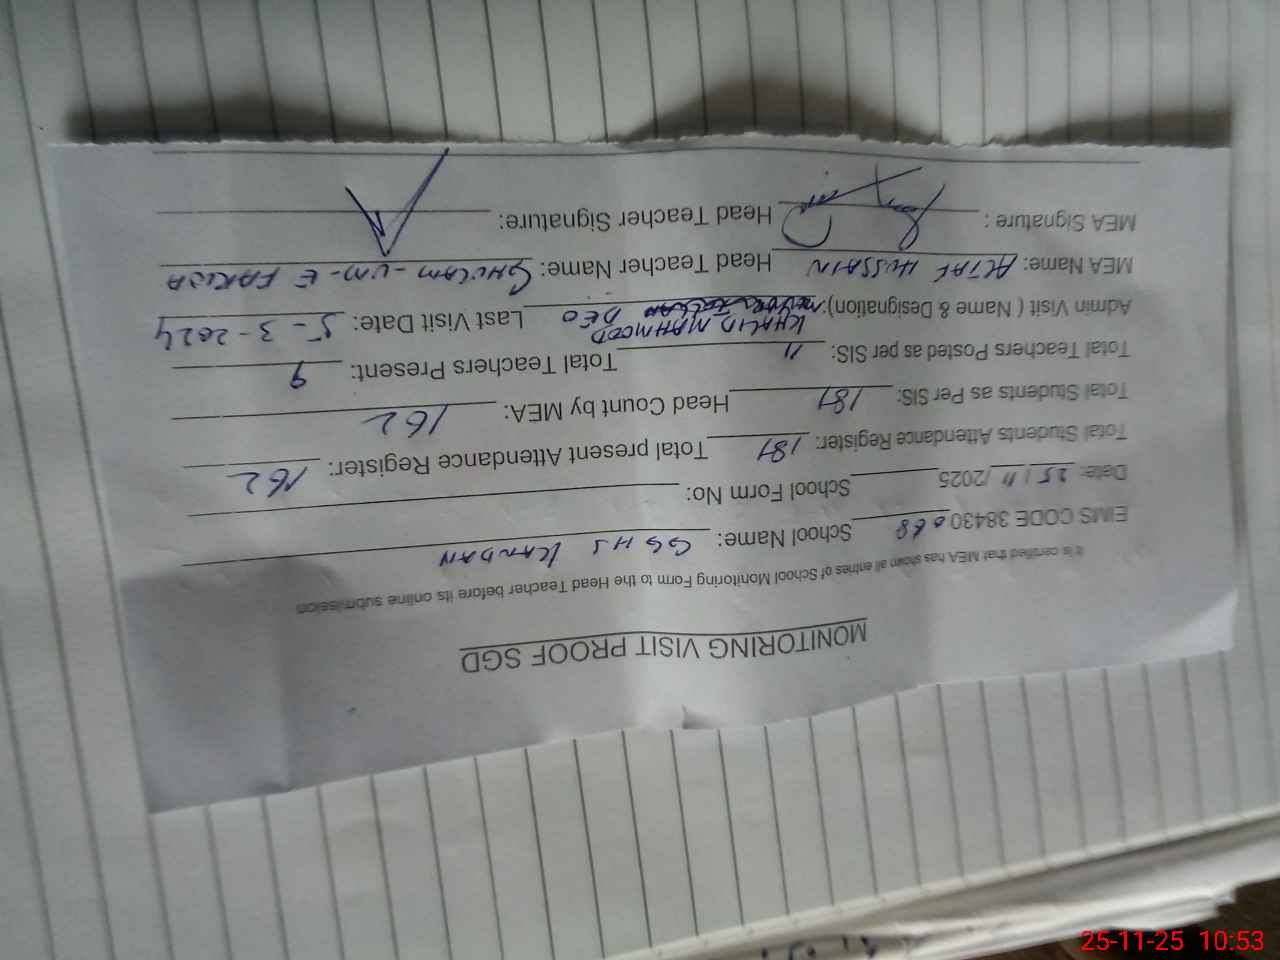 MONITORING VISIT PROOF SGD
It is certified that MEA has shown all entries of School Monitoring Form to the Head Teacher before its online submission
EIMS CODE 38430068 School Name: GGHS KANDAN
Date: 25/11/2025 School Form No:
Total Students Attendance Register: 187 Total present Attendance Register: 162
Total Students as Per SIS: 187 Head Count by MEA: 162
Total Teachers Posted as per SIS: 11 Total Teachers Present: 9
Admin Visit ( Name & Designation): KHALID MAHMOOD DEO Last Visit Date: 5-3-2024
MEA Name: ALTAF HUSSAIN Head Teacher Name: GHULAM-UM-E FARIDA
MEA Signature : Head Teacher Signature:
25-11-25 10:53